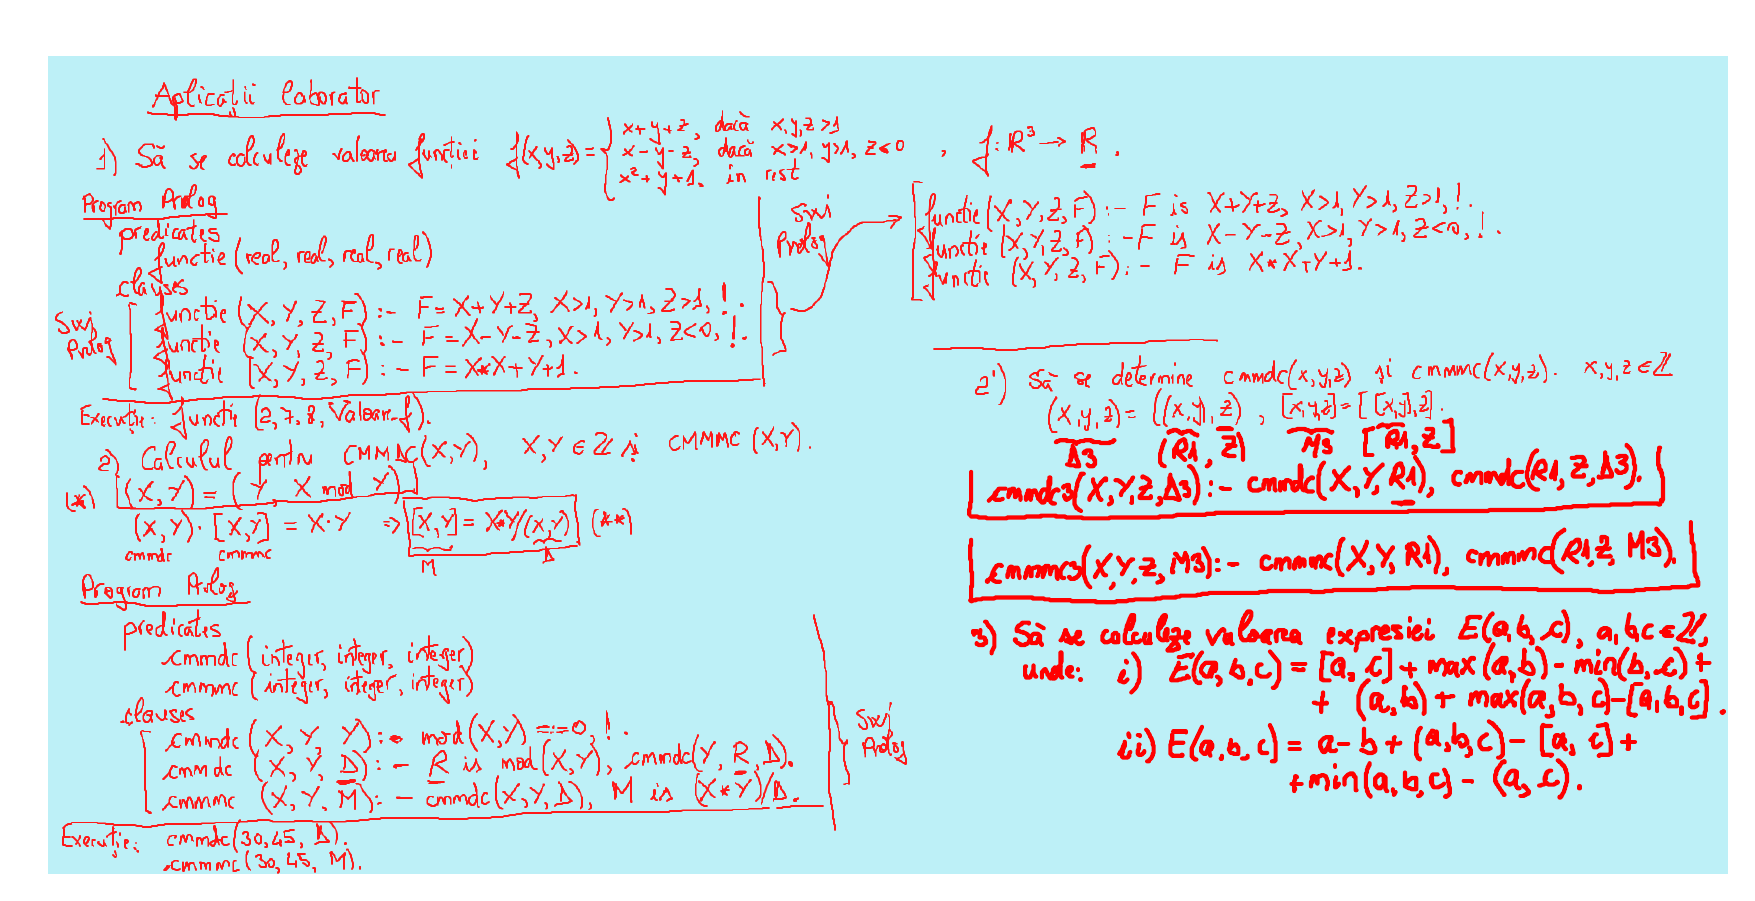 Aplicații laborator
1) Să se calculeze valoarea funcției f(x,y,z) = { x+y+z, dacă x,y,z>1
x-y-z, dacă x>1, y>1, z<0 , f: R³ → R.
x²+y+1, în rest
Program Prolog
predicates
functie (real, real, real, real)
clauses
Swi Prolog
functie (X, Y, Z, F) :- F=X+Y+Z, X>1, Y>1, Z>1, !.
functie (X, Y, Z, F) :- F=X-Y-Z, X>1, Y>1, Z<0, !.
functie (X, Y, Z, F) :- F=X*X+Y+1.
Execuție: functie (2, 7, 8, Valoare_f).
Swi Prolog
functie (X, Y, Z, F) :- F is X+Y+Z, X>1, Y>1, Z>1, !.
functie (X, Y, Z, F) :- F is X-Y-Z, X>1, Y>1, Z<0, !.
functie (X, Y, Z, F) :- F is X*X+Y+1.
2) Calculul pentru CMMDC(X,Y), X,Y ∈ ℤ și CMMMC (X,Y).
(*) (X, Y) = (Y, X mod Y)
(X,Y) · [X,Y] = X·Y => [X,Y] = X*Y/(X,Y) (**)
cmmdc cmmmc M D
Program Prolog
predicates
cmmdc (integer, integer, integer)
cmmmc (integer, integer, integer)
clauses
cmmdc (X, Y, Y) :- mod(X,Y) =:= 0, !.
cmmdc (X, Y, D) :- R is mod(X,Y), cmmdc(Y, R, D).
cmmmc (X, Y, M) :- cmmdc(X,Y,D), M is (X*Y)/D.
Swi Prolog
Execuție: cmmdc(30,45, D).
cmmmc(30, 45, M).
2') Să se determine cmmdc(x,y,z) și cmmmc(x,y,z). x,y,z ∈ ℤ
(x,y,z) = ((x,y), z) , [x,y,z] = [[x,y],z].
D3 (R1, Z) M3 [R1, Z]
cmmdc3(X,Y,Z,D3) :- cmmdc(X,Y,R1), cmmdc(R1,Z,D3).
cmmmc3(X,Y,Z,M3) :- cmmmc(X,Y,R1), cmmmc(R1,Z,M3).
3) Să se calculeze valoarea expresiei E(a,b,c), a,b,c ∈ ℤ,
unde: i) E(a,b,c) = [a, c] + max(a,b) - min(b,c) +
+ (a,b) + max(a,b,c) - [a,b,c].
ii) E(a,b,c) = a-b + (a,b,c) - [a, c] +
+ min(a,b,c) - (a,c).